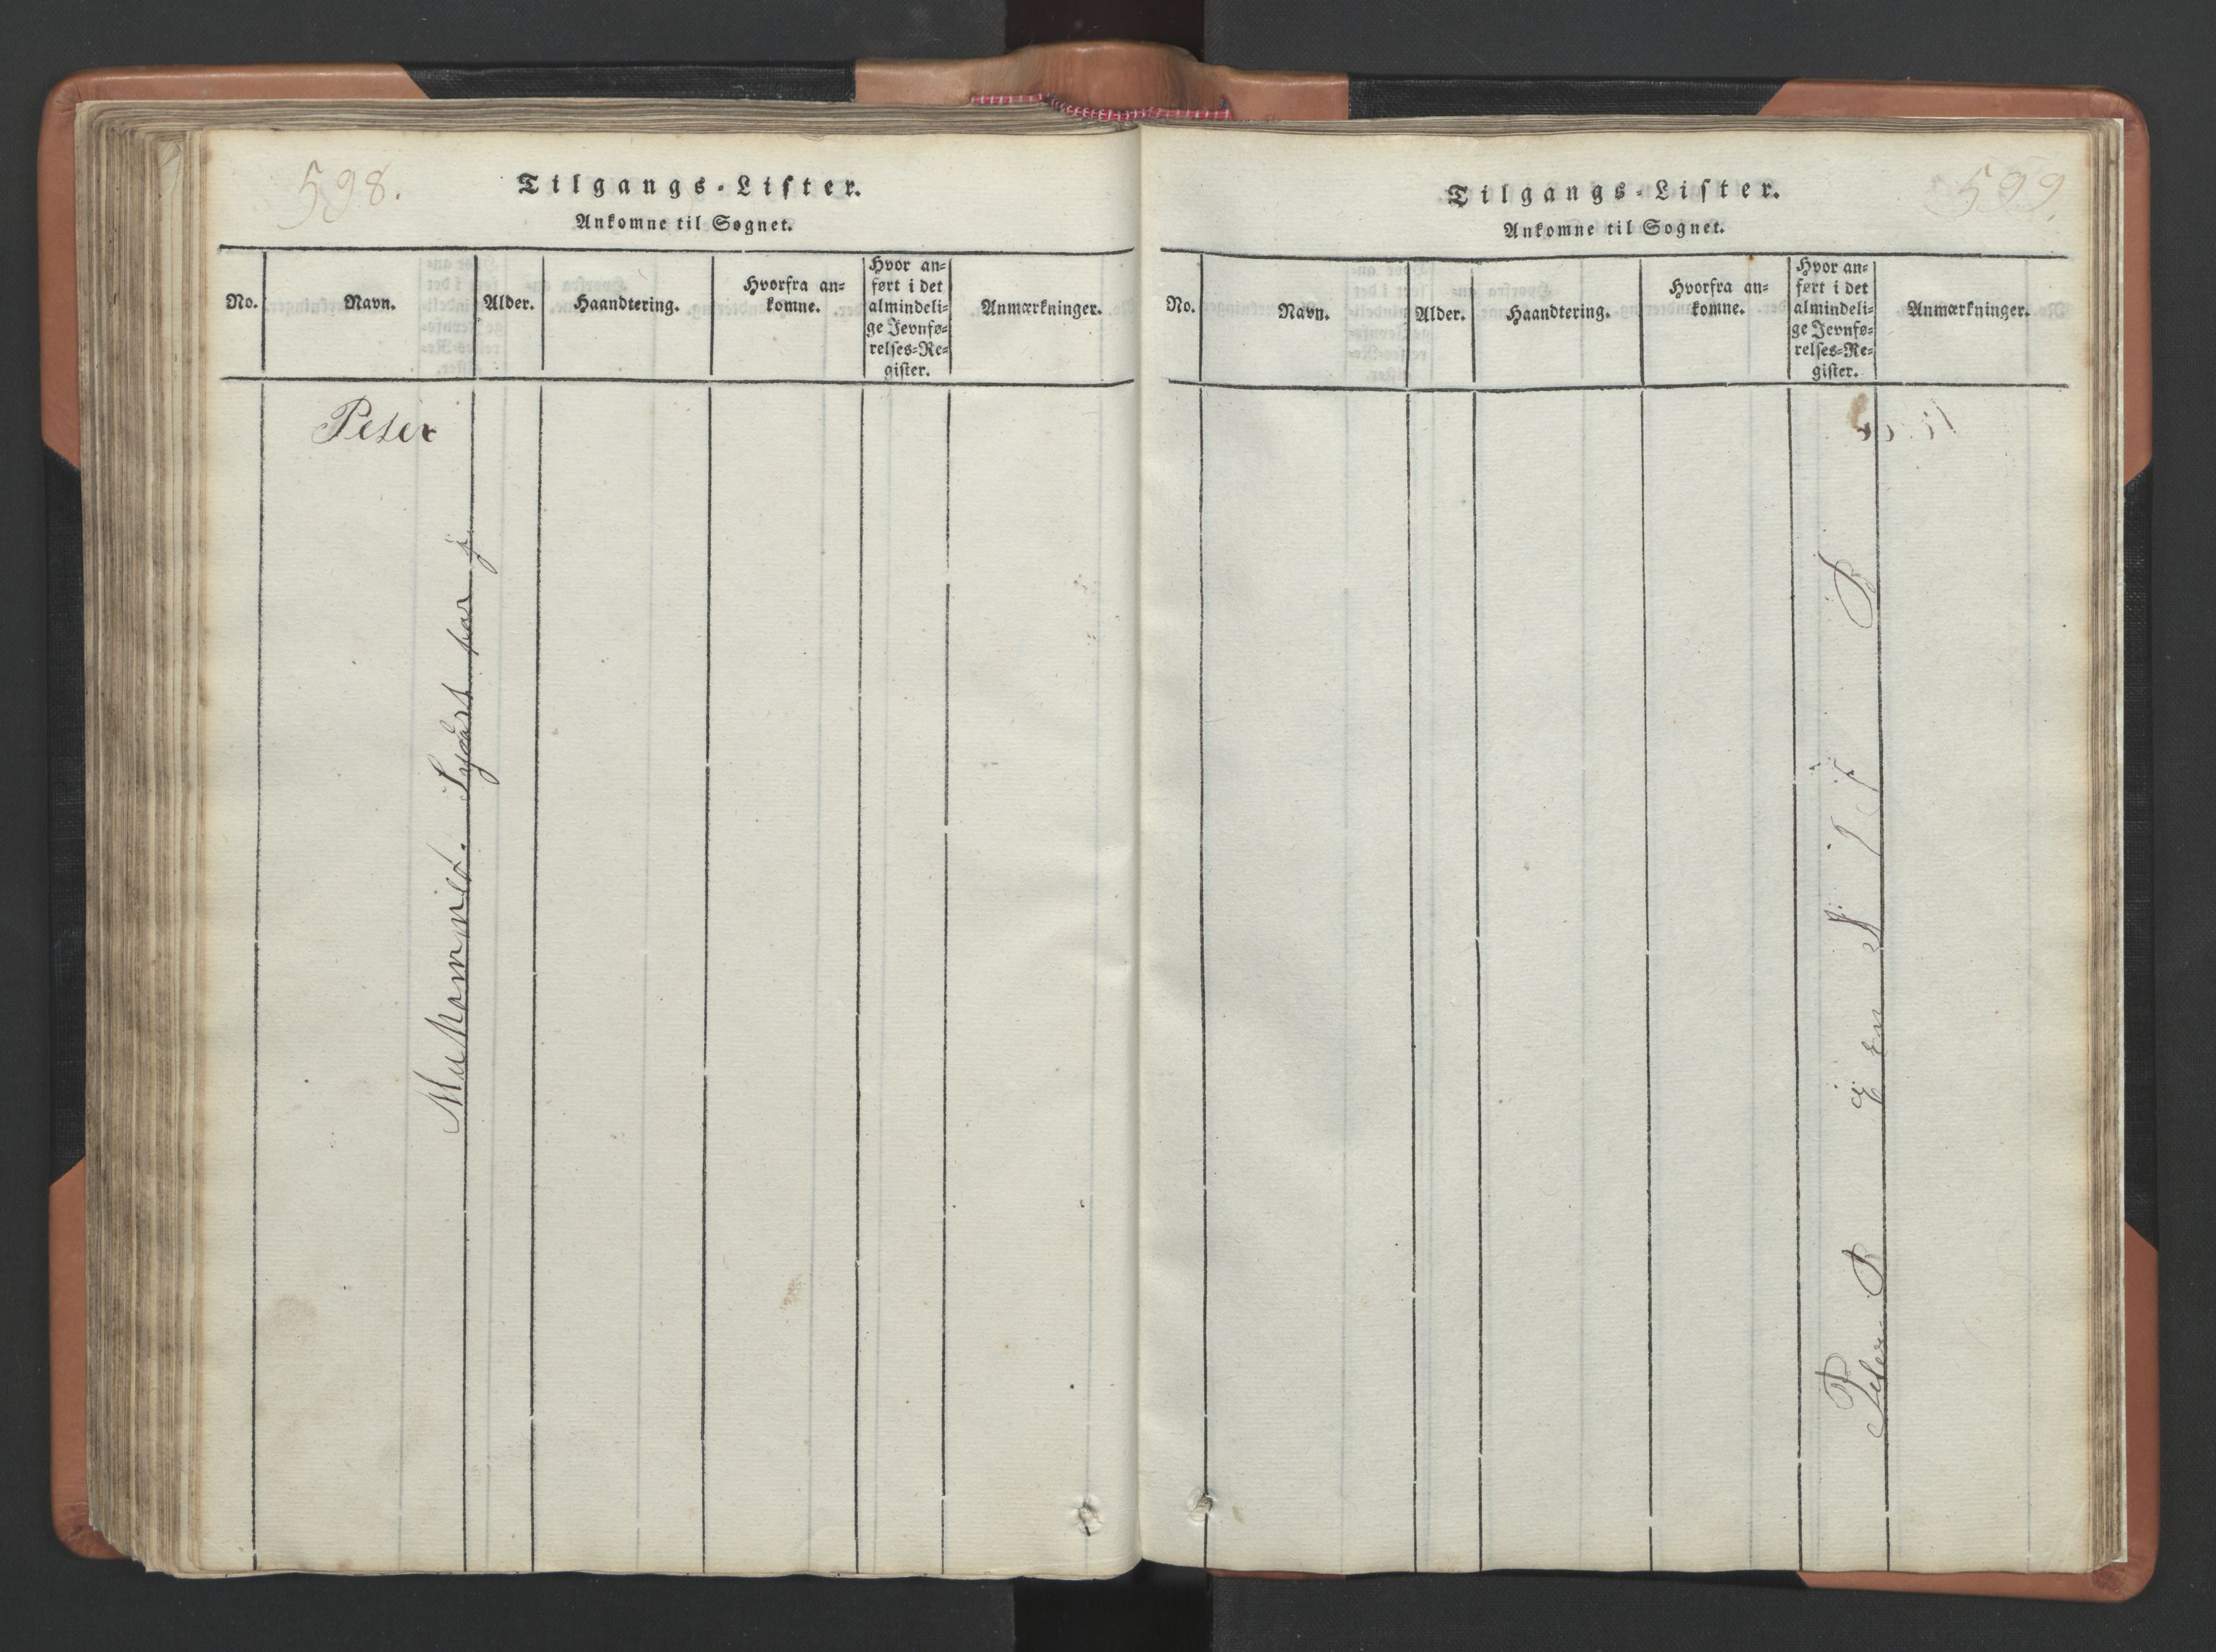 598.
Tilgangs-Lister.
Ankomne til Sognet.
No.
Navn.
Alder.
Haandtering.
Hvorfra an-
komne.
Hvor an-
ført i det
almindeli-
ge Jevnfø-
relses-Re-
gister.
Anmærkninger.
Peter
599.
Tilgangs-Lister.
Ankomne til Sognet.
No.
Navn.
Alder.
Haandtering.
Hvorfra an-
komne.
Hvor an-
ført i det
almindeli-
ge Jevnfø-
relses-Re-
gister.
Anmærkninger.
Peter B